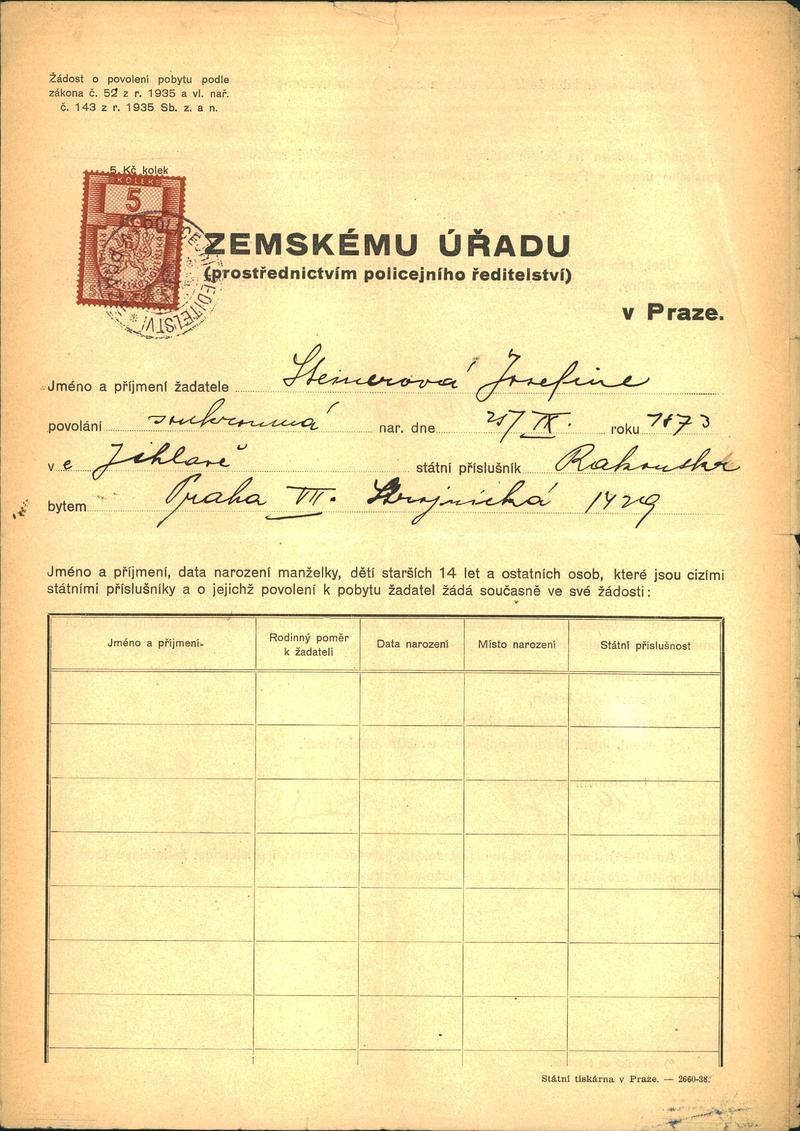 Žádost o povolení pobytu podle
zákona č. 52 z r. 1935 a vl. nař.
č. 143 z r. 1935 Sb. z. a n.
5 Kč kolek
KOLEK
5
POLICEJNÍ ŘEDITELSTVÍ
ZEMSKÉMU ÚŘADU
(prostřednictvím policejního ředitelství)
v Praze.
Jméno a příjmení žadatele Steinerová Josefine
povolání soukromná nar. dne 25/IX. roku 1873
v e Jihlavě státní příslušník Rakouska
bytem Praha VII. Strojnická 1429
Jméno a příjmení, data narození manželky, dětí starších 14 let a ostatních osob, které jsou cizími
státními příslušníky a o jejichž povolení k pobytu žadatel žádá současně ve své žádosti:
Jméno a příjmení Rodinný poměr Data narození Místo narození Státní příslušnost
k žadateli
Státní tiskárna v Praze. — 2660-38.